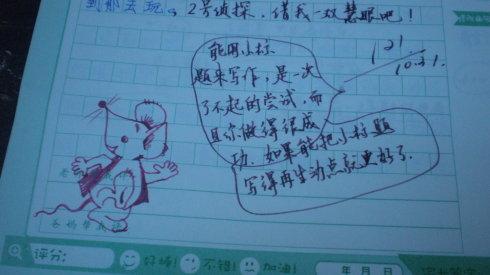 到那去玩。2号侦探，借我一双慧眼吧！
能用小标
题来写作，是一次
了不起的尝试，而
且你做得很成
功，如果能把小标题
写得再生动点就更好了.
10.31.
评分：
好棒！ 不错！ 加油！
年 月 日